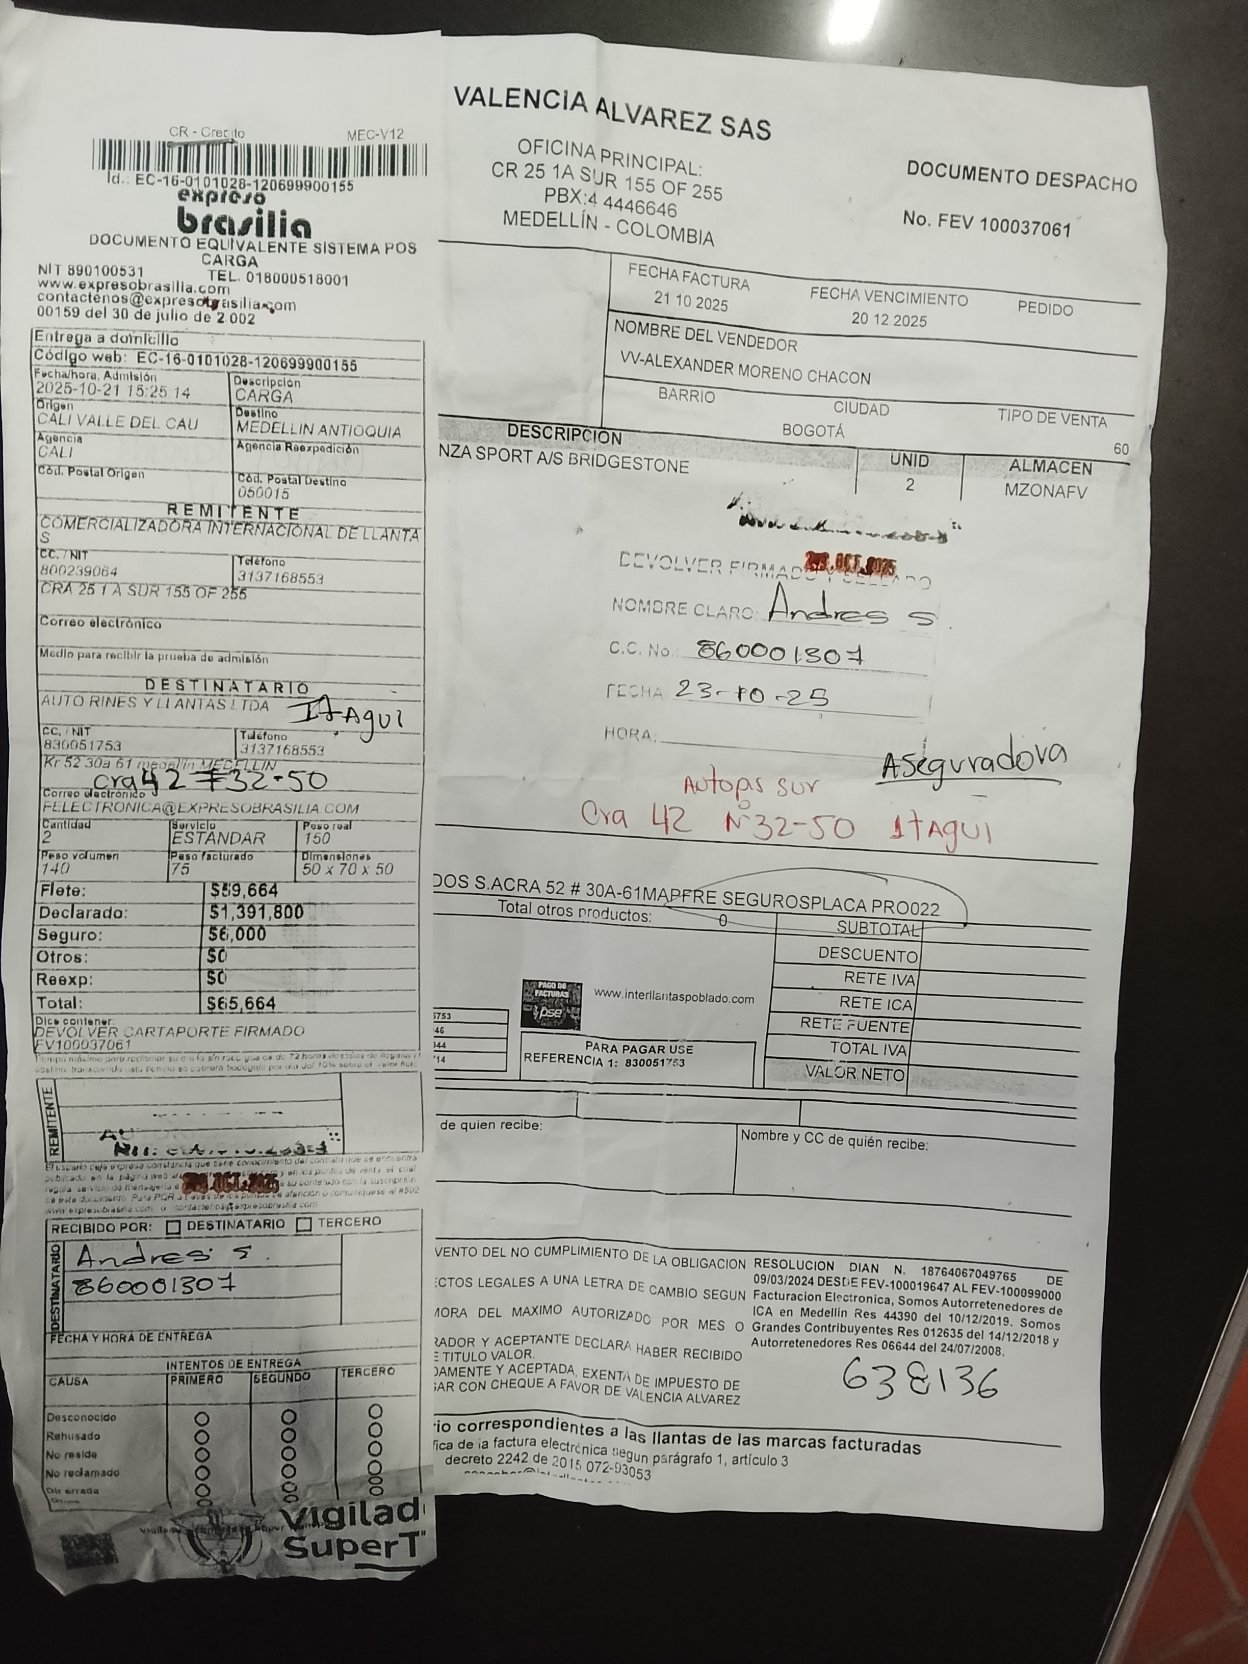 CR - Credito MEC-V12
Id.: EC-16-0101028-120699900155
expreso
brasilia
DOCUMENTO EQUIVALENTE SISTEMA POS
CARGA
NIT 890100531 TEL. 018000518001
www.expresobrasilia.com
contactenos@expresobrasilia.com
00159 del 30 de julio de 2.002
Entrega a domicilio
Código web: EC-16-0101028-120699900155
Fecha/hora, Admisión Descripción
2025-10-21 15:25:14 CARGA
Origen Destino
CALI VALLE DEL CAU MEDELLIN ANTIOQUIA
Agencia Agencia Reexpedición
CALI
Cód. Postal Origen Cód. Postal Destino
050015
REMITENTE
COMERCIALIZADORA INTERNACIONAL DE LLANTA
S
CC. / NIT Teléfono
800239064 3137168553
CRA 25 1 A SUR 155 OF 255
Correo electrónico
Medio para recibir la prueba de admisión
DESTINATARIO
AUTO RINES Y LLANTAS LTDA ITAGUI
CC. / NIT Teléfono
830051753 3137168553
Kr 52 30a 61 medellin MEDELLIN
cra 42 # 32-50
Correo electrónico
FELECTRONICA@EXPRESOBRASILIA.COM
Cantidad Servicio Peso real
2 ESTANDAR 150
Peso volumen Peso facturado Dimensiones
140 75 50 x 70 x 50
Flete: $59,664
Declarado: $1,391,800
Seguro: $6,000
Otros: $0
Reexp: $0
Total: $65,664
Dice contener:
DEVOLVER CARTAPORTE FIRMADO
FV100037061
REMITENTE
RECIBIDO POR: DESTINATARIO TERCERO
DESTINATARIO
Andres S.
860001307
FECHA Y HORA DE ENTREGA
INTENTOS DE ENTREGA
CAUSA PRIMERO SEGUNDO TERCERO
Desconocido
Rehusado
No reside
No reclamado
Dir errada
Vigilad
SuperT
VALENCIA ALVAREZ SAS
OFICINA PRINCIPAL:
CR 25 1A SUR 155 OF 255
PBX:4 4446646
MEDELLÍN - COLOMBIA
DOCUMENTO DESPACHO
No. FEV 100037061
FECHA FACTURA FECHA VENCIMIENTO PEDIDO
21 10 2025 20 12 2025
NOMBRE DEL VENDEDOR
VV-ALEXANDER MORENO CHACON
BARRIO CIUDAD TIPO DE VENTA
BOGOTÁ 60
DESCRIPCION UNID ALMACEN
NZA SPORT A/S BRIDGESTONE 2 MZONAFV
OCT. 2025
DEVOLVER FIRMADO Y SELLADO
NOMBRE CLARO: Andres S.
C.C. No.: 860001307
FECHA: 23-10-25
HORA:
Aseguradora
Autopis sur
Cra 42 N° 32-50 ITAGUI
DOS S.ACRA 52 # 30A-61MAPFRE SEGUROSPLACA PRO022
Total otros productos: 0
SUBTOTAL
DESCUENTO
RETE IVA
RETE ICA
RETE FUENTE
TOTAL IVA
VALOR NETO
PAGO DE
FACTURAS
pse
www.interllantaspoblado.com
PARA PAGAR USE
REFERENCIA 1: 830051753
de quien recibe:
Nombre y CC de quién recibe:
VENTO DEL NO CUMPLIMIENTO DE LA OBLIGACION
ECTOS LEGALES A UNA LETRA DE CAMBIO SEGUN
MORA DEL MAXIMO AUTORIZADO POR MES O
RADOR Y ACEPTANTE DECLARA HABER RECIBIDO
E TITULO VALOR.
DAMENTE Y ACEPTADA, EXENTA DE IMPUESTO DE
GAR CON CHEQUE A FAVOR DE VALENCIA ALVAREZ
RESOLUCION DIAN N. 18764067049765 DE
09/03/2024 DESDE FEV-100019647 AL FEV-100099000
Facturacion Electronica, Somos Autorretenedores de
ICA en Medellín Res 44390 del 10/12/2019. Somos
Grandes Contribuyentes Res 012635 del 14/12/2018 y
Autorretenedores Res 06644 del 24/07/2008.
638136
rio correspondientes a las llantas de las marcas facturadas
fica de la factura electrónica segun parágrafo 1, artículo 3
decreto 2242 de 2015 072-93053